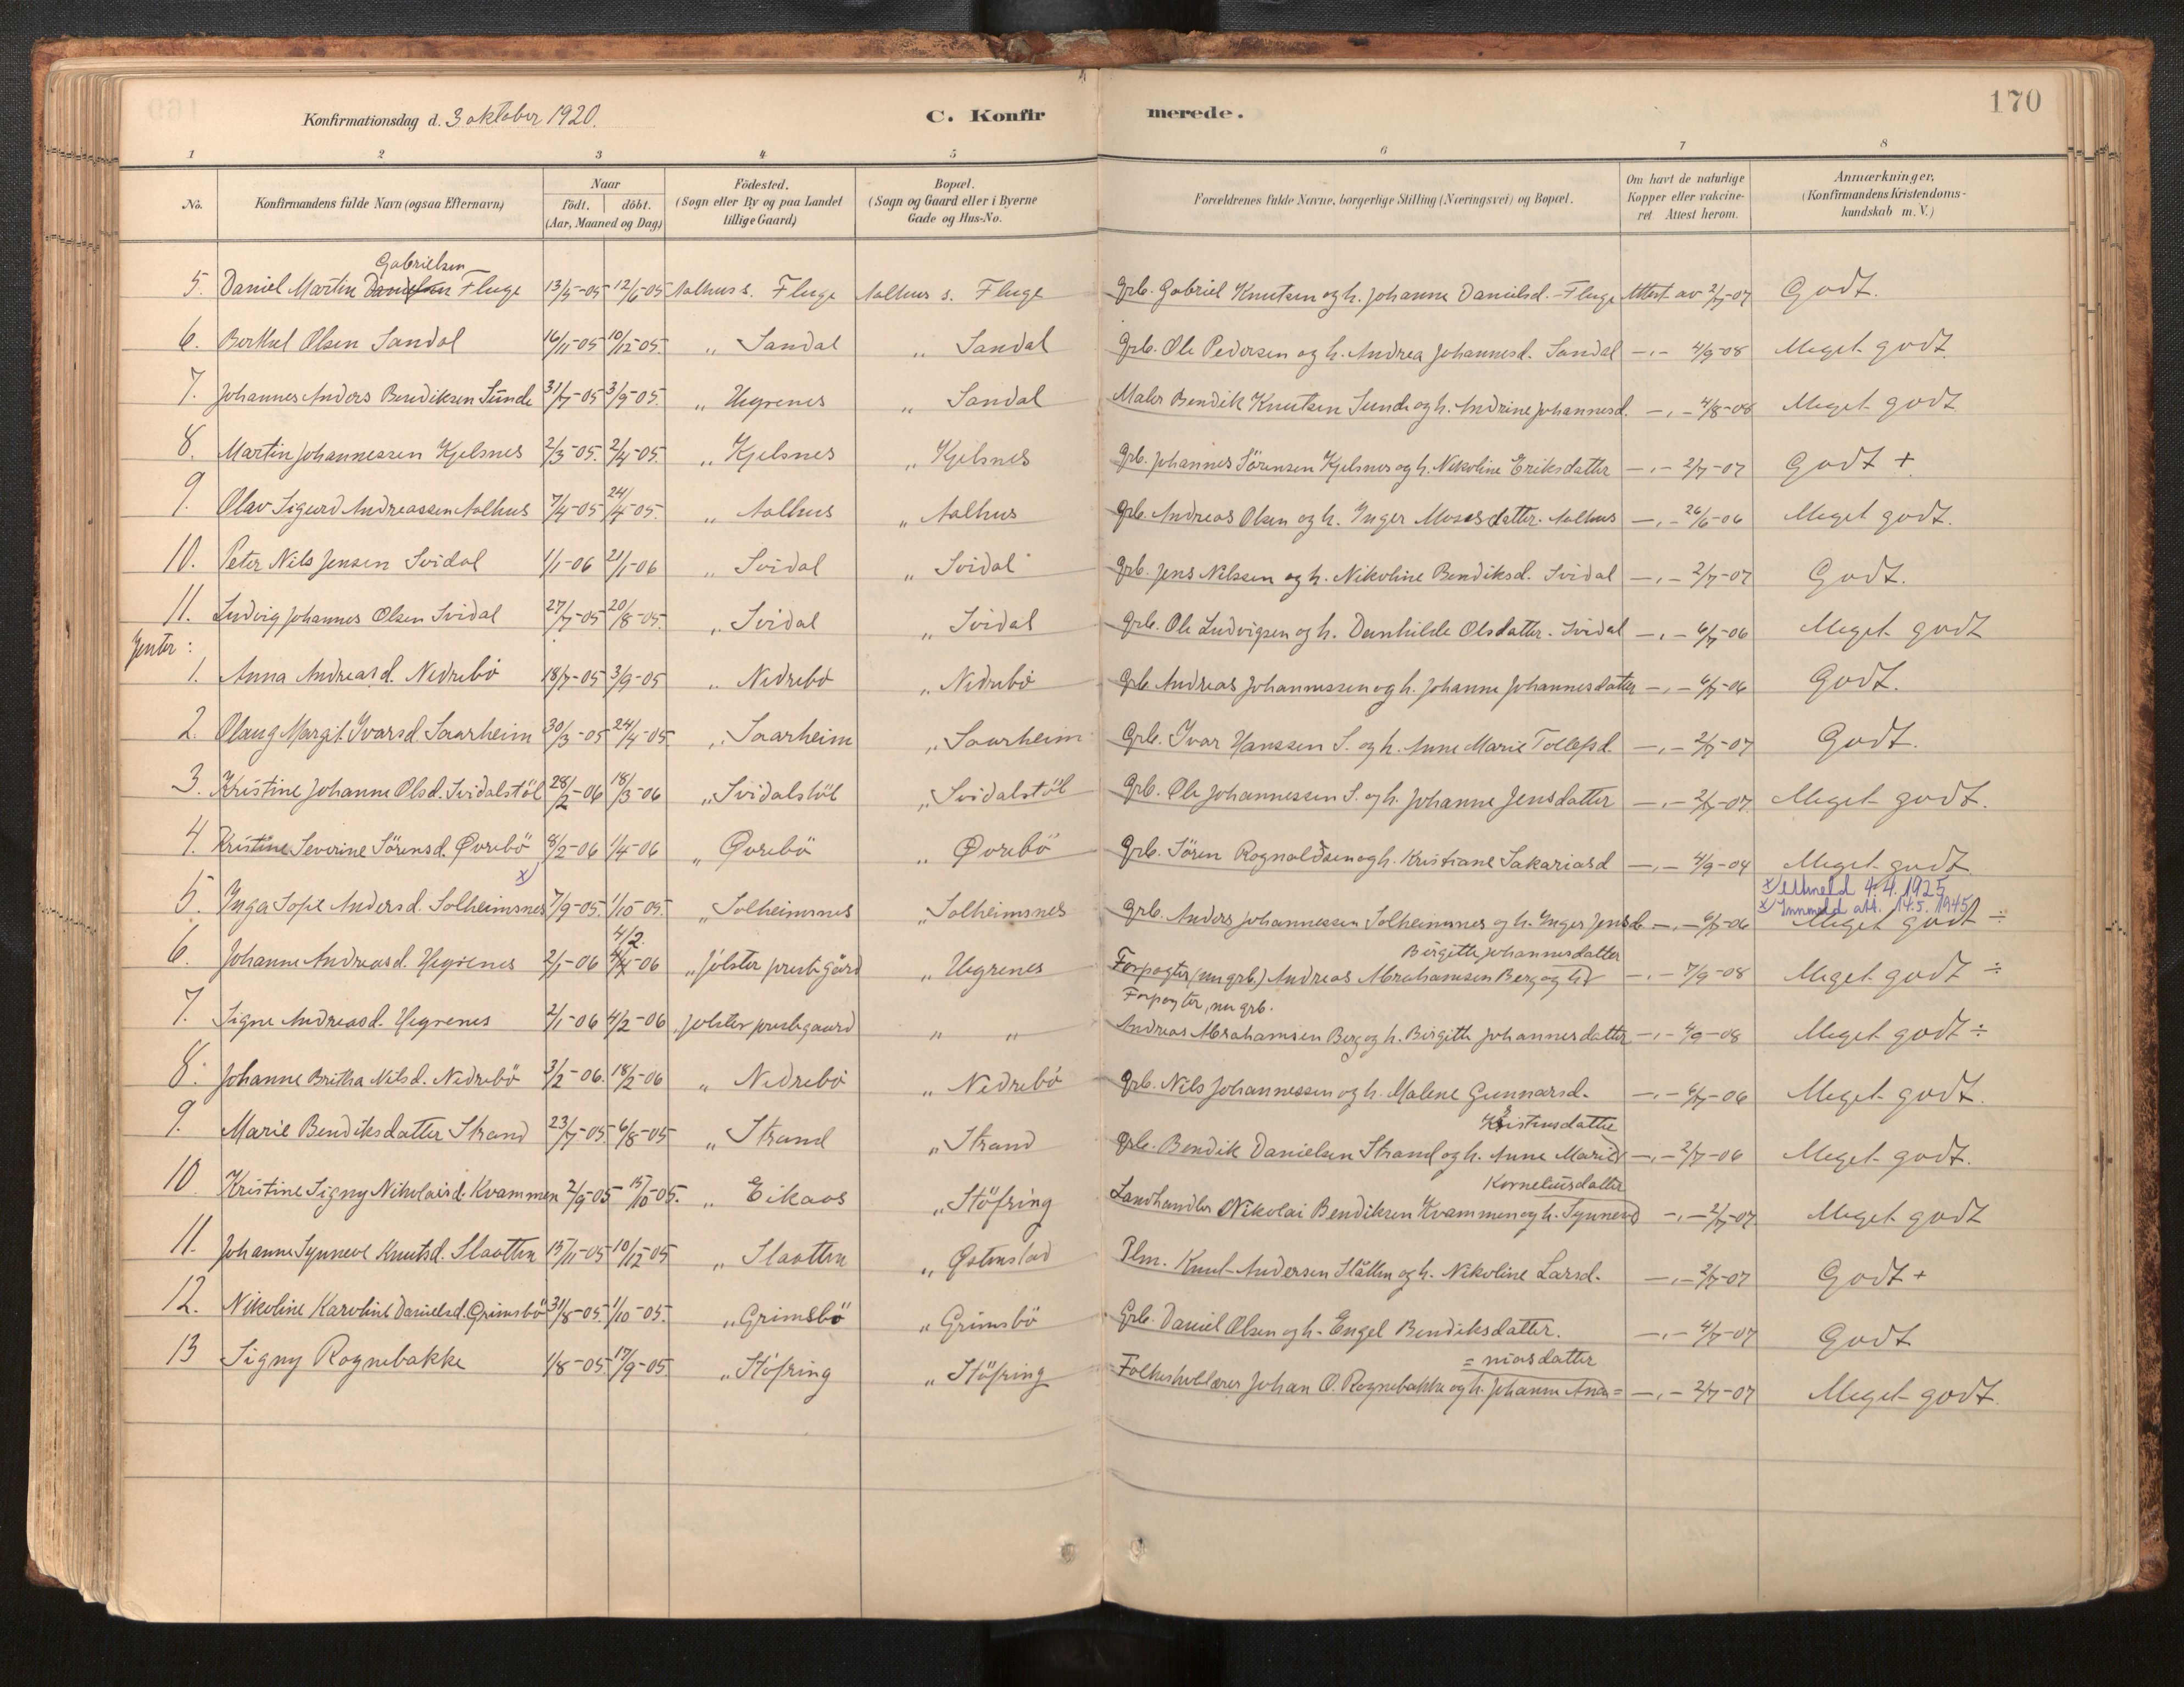 170
Konfirmationsdag d. 3 oktober 1920. C. Konfirmerede.
1 2 3 4 5 6 7 8
No. Konfirmandens fulde Navn (ogsaa Efternavn) Naar födt. döbt. (Aar, Maaned og Dag) Födested. (Sogn eller By og paa Landet tillige Gaard) Bopæl. (Sogn og Gaard eller i Byerne Gade og Hus-No. Forældrenes fulde Navne, borgerlige Stilling (Næringsvei) og Bopæl. Om havt de naturlige Kopper eller vakcineret Attest herom. Anmærkninger, (Konfirmandens Kristendomskundskab m. V.)
Gabrielsen
5. Daniel Martin Danielsen Fluge 13/5-05 12/6-05 Aalhus s. Fluge Aalhus s. Fluge Grb. Gabriel Knutsen og h. Johanne Danielsd. Fluge Attest av 2/7-07 Godt.
6. Berthel Olsen Sandal 16/11-05 10/12-05. " Sandal " Sandal Grb. Ole Pedersen og h. Andrea Johannesd. Sandal -"- 4/9-08 Meget godt
7. Johannes Anders Bendiksen Sunde 31/7-05 3/9-05. " Hegrenes " Sandal Maler Bendik Knutsen Sunde og h. Andrine Johannesd. -"- 4/8-08 Meget godt
8. Martin Johannessen Kjelsnes 2/3-05. 2/4-05. " Kjelsnes " Kjelsnes Grb. Johannes Sörensen Kjelsnes og h. Nikoline Eriksdatter -"- 2/7-07 Godt +
9. Olav Sigurd Andreassen Aalhus 7/4-05 24/4-05. " Aalhus " Aalhus Grb. Andreas Olsen og h. Inger Mosesdatter. Aalhus -"- 26/6-06 Meget godt.
10. Peter Nils Jensen Svidal 1/1-06 21/1-06 " Svidal " Svidal Grb. Jens Nilssen og h. Nikoline Bendiksd. Svidal -"- 2/7-07 Godt.
11. Ludvig Johannes Olsen Svidal 27/7-05 20/8-05. " Svidal " Svidal Grb. Ole Ludvigsen og h. Danhilde Olsdatter. Svidal -"- 6/7-06 Meget godt
Jenter:
1. Anna Andreasd. Nedrebö 18/7-05 3/9-05 " Nedrebö " Nedrebö Grb. Andreas Johannessen og h. Johanne Johannesdatter -"- 6/7-06 Godt.
2. Olaug Margit Ivarsd. Saarheim 30/3-05 24/4-05 " Saarheim " Saarheim Grb. Ivar Hanssen S. og h. Anne Marie Tollefsd. -"- 2/7-07 Godt.
3. Kristine Johanne Olsd. Svidalstöl 28/2-06 18/3-06 " Svidalstöl " Svidalstöl Grb. Ole Johannessen S. og h. Johanne Jensdatter -"- 2/7-07 Meget godt.
4. Kristine Severine Sörensd. Øvrebö 8/2-06 1/4-06 " Øvrebö " Øvrebö Grb. Sören Rognaldsen og h. Kristiane Sakariasd -"- 4/9-04 Meget godt
x) x) Utmeld 4.4.1925
x) Innmeld att. 14.5.1945
5. Inga Sofie Andersd. Solheimsnes 7/9-05. 1/10-05. " Solheimsnes " Solheimsnes Grb. Anders Johannessen Solheimsnes og h. Inger Jensd. -"- 6/7-06 Meget godt ÷
4/2. Birgitte Johannesdatter
6. Johanne Andreasd. Hegrenes 2/1-06 4/4-06 " Jölster prestegård " Hegrenes Forpagter (nu grb.) Andreas Abrahamsen Berg og h. -"- 7/9-08 Meget godt ÷
Forpagter, nu grb.
7. Signe Andreasd. Hegrenes 2/1-06 4/2-06 Jölster prestegaard " " Andreas Abrahamsen Berg og h. Birgitte Johannesdatter -"- 4/9-08 Meget godt ÷
8. Johanne Britha Nilsd. Nedrebö 3/2-06. 18/2-06 " Nedrebö " Nedrebö Grb. Nils Johannessen og h. Malene Gunnarsd. -"- 6/7-06 Meget godt.
Kristensdatter
9. Marie Bendiksdatter Strand 23/7-05. 6/8-05 " Strand " Strand Grb. Bendik Danielsen Strand og h. Anne Marie -"- 2/7-06 Meget godt.
Korneliusdatter
10 Kristine Signy Nikolaisd. Kvammen 2/9-05 15/10-05. " Eikaas " Stöfring Landhandler Nikolai Bendiksen Kvammen og h. Synneve -"- 2/7-07 Meget godt
11. Johanne Synneve Knutsd. Slaatten 15/11-05 10/12-05 " Slaatten " Østenstad Plm. Knut Andersen Slåtten og h. Nikoline Larsd. -"- 2/7-07 Godt +
12. Nikoline Karoline Danielsd. Grimsbö 31/8-05 1/10-05. " Grimsbö " Grimsbö Grb. Daniel Olsen og h. Engel Bendiksdatter. -"- 4/7-07 Godt
= niasdatter
13 Signy Rognebakke 1/8-05 17/9-05. " Stöfring " Stöfring Folkeskolelærer Johan O. Rognebakke og h. Johanne Ana= -"- 2/7-07 Meget godt.